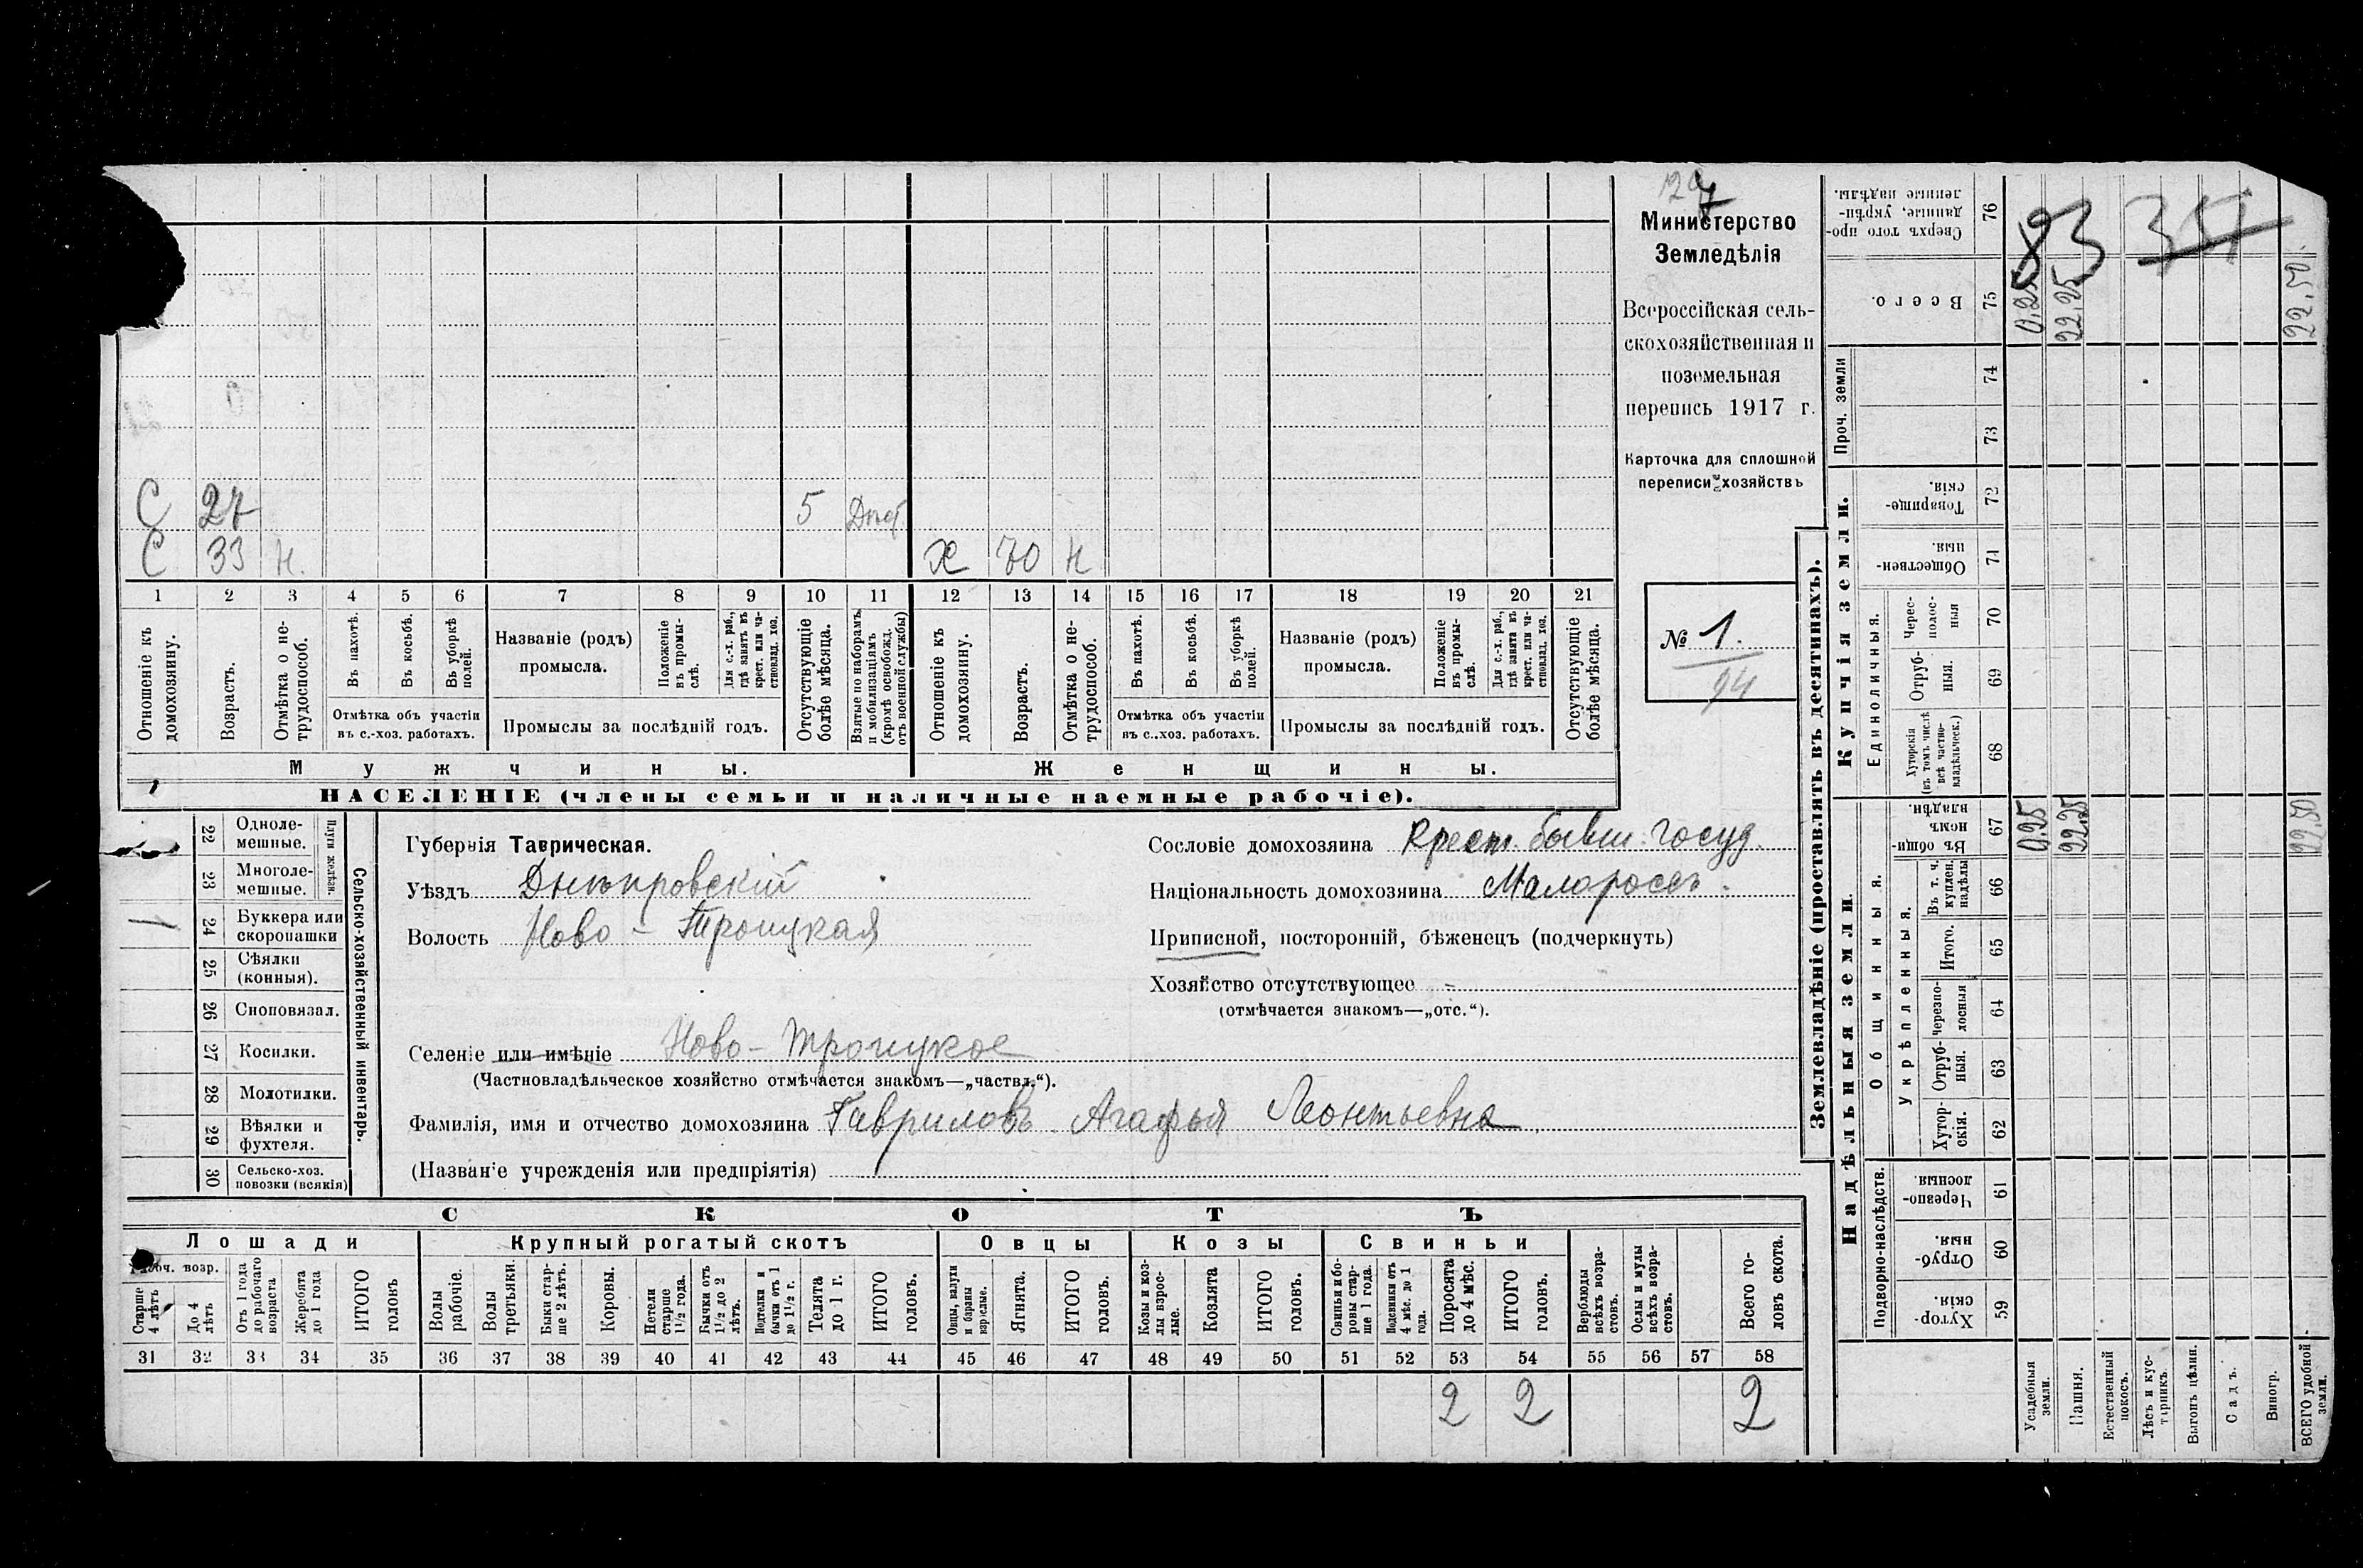 127
Министерство
Земледѣлія
Всероссійская сель-
скохозяйственная и
поземельная
перепись 1917 г.
Карточка для сплошной
переписи хозяйствъ
№ 1.
94
С 27 5
С 33 н. Х 70 н
1 2 3 4 5 6 7 8 9 10 11 12 13 14 15 16 17 18 19 20 21
Отношеніе къ домохозяину.
Возрастъ.
Отмѣтка о не-трудоспособ.
Въ пахотѣ.
Въ косьбѣ.
Въ уборкѣ полей.
Отмѣтка объ участіи
въ с.-хоз. работахъ.
Названіе (родъ)
промысла.
Положеніе въ промы-слѣ.
Для с.-х. раб., гдѣ занятъ въ крест. или ча-стновлад. хоз.
Промыслы за послѣдній годъ.
Отсутствующіе болѣе мѣсяца.
Взятые по наборамъ и мобилизаціямъ (кромѣ освобожд. отъ военной службы)
Отношеніе къ домохозяину.
Возрастъ.
Отмѣтка о не-трудоспособ.
Въ пахотѣ.
Въ косьбѣ.
Въ уборкѣ полей.
Отмѣтка объ участіи
въ с..хоз. работахъ.
Названіе (родъ)
промысла.
Положеніе въ промы-слѣ.
Для с.-х. раб., гдѣ занята въ крест. или ча-стновлад. хоз.
Промыслы за послѣдній годъ.
Отсутствующіе болѣе мѣсяца.
Мужчины. Женщины.
НАСЕЛЕНІЕ (члены семьи и наличные наемные рабочіе).
Сельско-хозяйственный инвентарь.
Плуги желѣзн.
22 Одноле-мешные.
23 Многоле-мешные.
1 24 Буккера или скоропашки
25 Сѣялки (конныя).
26 Сноповязал.
27 Косилки.
28 Молотилки.
29 Вѣялки и фухтеля.
30 Сельско-хоз. повозки (всякія)
Губернія Таврическая.
Уѣздъ Днѣпровскій
Волость Ново-Троицкая
Сословіе домохозяина Крест. бывш. госуд.
Національность домохозяина Малороссъ.
Приписной, посторонній, бѣженецъ (подчеркнуть)
Хозяйство отсутствующее -
(отмѣчается знакомъ—„отс.“).
Селеніе или имѣніе Ново-Троицкое
(Частновладѣльческое хозяйство отмѣчается знакомъ—„частвл.“).
Фамилія, имя и отчество домохозяина Гавриловъ Агафья Леонтьевна.
(Названіе учрежденія или предпріятія)
СКОТЪ
Лошади Крупный рогатый скотъ Овцы Козы Свиньи
Рабоч. возр.
Старше 4 лѣтъ
До 4 лѣтъ
Отъ 1 года до рабочаго возраста
Жеребята до 1 года
ИТОГО головъ
Волы рабочіе.
Волы третьяки.
Быки стар-ше 2 лѣтъ.
Коровы.
Нетели старше 1½ года.
Бычки отъ 1½ до 2 лѣтъ.
Подтелки и бычки отъ 1 до 1½ г.
Телята до 1 г.
ИТОГО головъ.
Овцы, валухи и бараны взрослые.
Ягнята.
ИТОГО головъ.
Козы и коз-лы взрос-лые.
Козлята
ИТОГО головъ.
Свиньи и бо-ровы стар-ше 1 года.
Подсвинки отъ 4 мѣс. до 1 года.
Поросята до 4 мѣс.
ИТОГО головъ.
Верблюды всѣхъ возра-стовъ.
Ослы и мулы всѣхъ возра-стовъ.
Всего го-ловъ скота.
31 32 33 34 35 36 37 38 39 40 41 42 43 44 45 46 47 48 49 50 51 52 53 54 55 56 57 58
2 2 2
Землевладѣніе (проставлять въ десятинахъ).
Надѣльныя земли. Купчія земли. Проч. земли
Подворно-наслѣдств. Общинныя. Укрѣпленныя. Единоличныя.
Хутор-скія. 59
Отруб-ныя. 60
Черезпо-лосныя. 61
Хутор-скія. 62
Отруб-ныя. 63
Черезпо-лосныя 64
Итого. 65
Въ т. ч. куплен. надѣлы 66
Въ общи-номъ владѣн. 67
Хуторскія (въ томъ числѣ всѣ частно-владѣльческ.) 68
Отруб-ныя. 69
Черес-полос-ныя 70
Обществен-ныя. 71
Товарище-скія. 72
73
74
Всего. 75
Сверхъ того про-данные, укрѣп-ленные надѣлы. 76
Усадебныя земли. 0,25 0,25
Пашня. 22,25 22,25
Естественный покосъ.
Лѣсъ и кус-тарникъ.
Выгонъ цѣлин.
Садъ.
Виногр.
ВСЕГО удобной земли. 22,50 22,50.
83 351